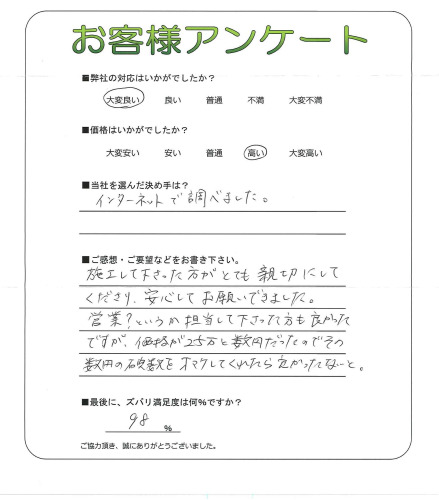 お客様アンケート
■弊社の対応はいかがでしたか?
大変良い 良い 普通 不満 大変不満
■価格はいかがでしたか?
大変安い 安い 普通 高い 大変高い
■当社を選んだ決め手は?
インターネットで調べました。
■ご感想・ご要望などをお書き下さい。
施工して下さった方がとても親切にして
くださり、安心してお願いできました。
営業?というか担当して下さった方も良かった
ですが、価格が25万と数円だったのでその
数円の硬数をオマケしてくれたら良かったなぁ、と。
■最後に、ズバリ満足度は何%ですか?
98 %
ご協力頂き、誠にありがとうございました。